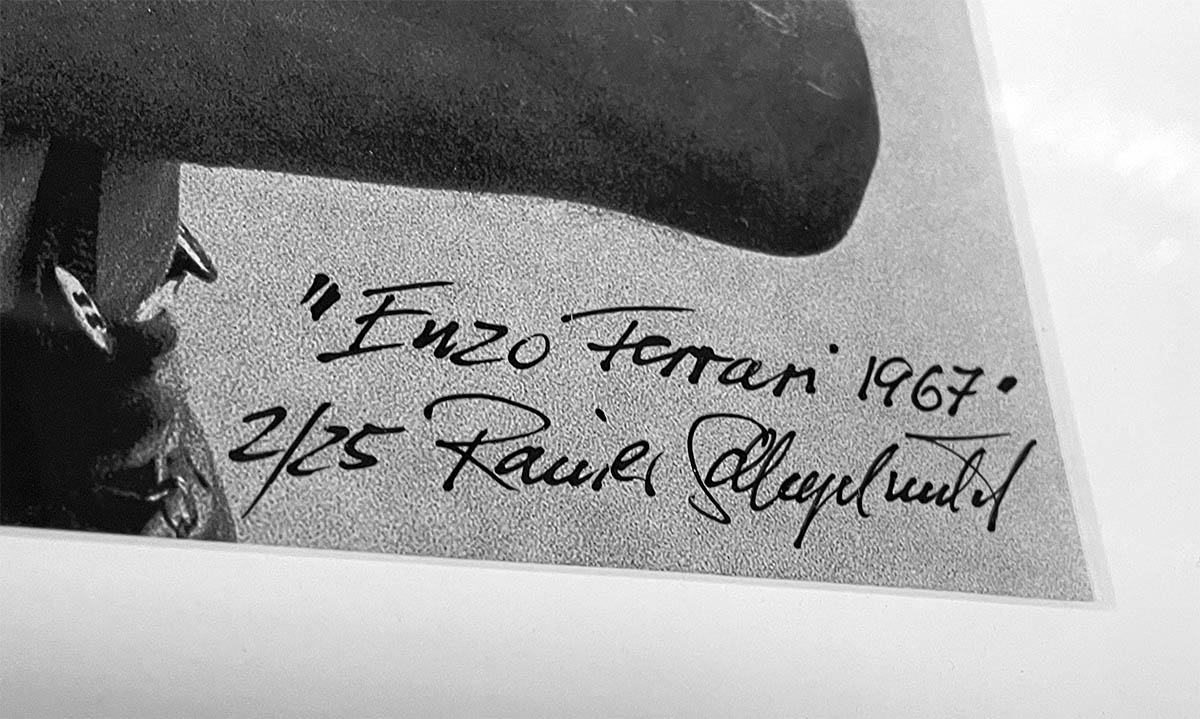 "Enzo Ferrari 1967"
2/25 Rainer Schlegelmilch